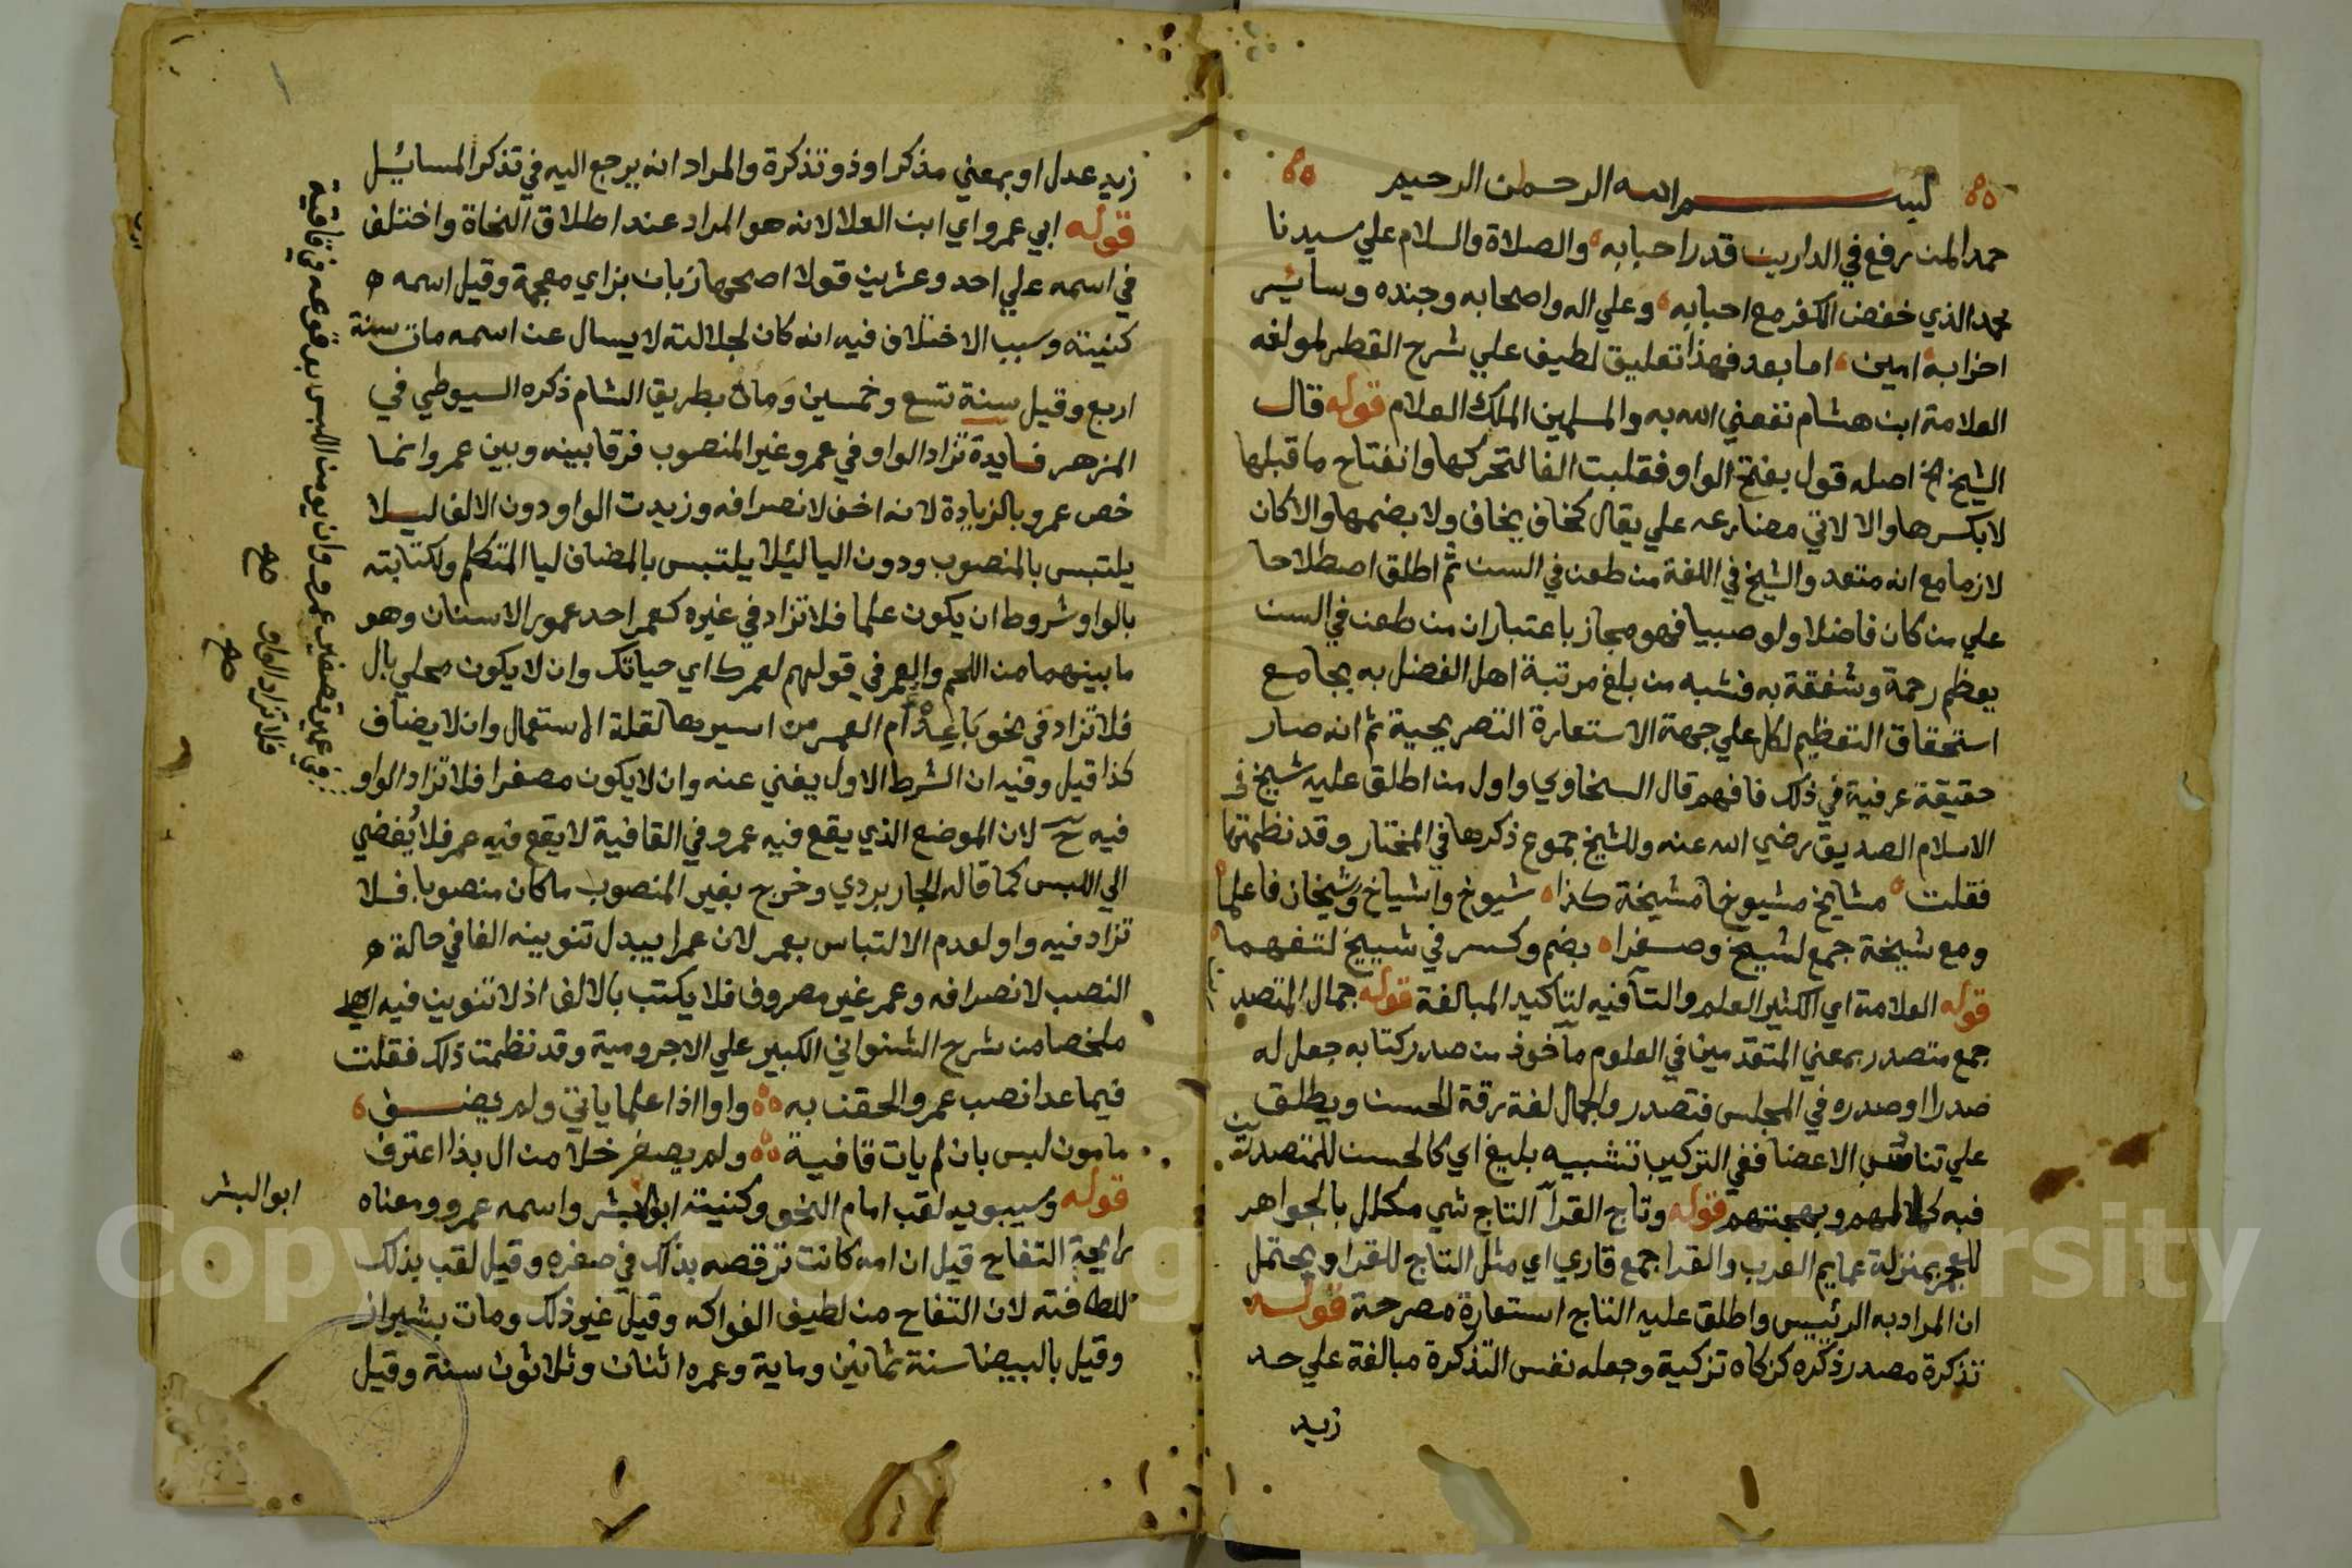 بسم الله الرحمن الرحيم
حمدا لمن رفع في الدارين قدر احبابه والصلاة والسلام علي سيدنا
محمد الذي خفض الكفر مع احبابه وعلي اله واصحابه وجنده وسائر
احزابه امين اما بعد فهذا تعليق لطيف علي شرح القطر لمولفه
العلامة ابن هشام نفعني الله به والمسلمين الملك العلام قوله قال
الشيخ الخ اصله قول بفتح الواو فقلبت الفا لتحركها وانفتاح ما قبلها
لا بكسرها والا لاتي مضارعه علي يقال كخاف يخاف ولا بضمها والا كان
لازما مع انه متعد والشيخ في اللغة من طعن في السن ثم اطلق اصطلاحا
علي من كان فاضلا ولو صبيا فهو مجاز باعتبار ان من طعن في السن
يعظم رحمة وشفقة به فشبه من بلغ مرتبة اهل الفضل به بجامع
استحقاق التعظيم لكل علي جهة الاستعارة التصريحية ثم انه صار
حقيقة عرفية في ذلك فافهم قال السخاوي واول من اطلق عليه شيخ في
الاسلام الصديق رضي الله عنه وللشيخ جموع ذكرها في المختار وقد نظمتها
فقلت مشايخ مشيوخا مشيخة كذا شيوخ واشياخ وشيخان فاعلما
ومع شيخة جمع لشيخ وصغرا بضم وكسر في شييخ لتفهما
قوله العلامة اي الكثير العلم والتا فيه لتاكيد المبالغة قوله جمال المتصدرين
جمع متصدر بمعني المتقدمين في العلوم ماخوذ من صدر كتابه جعل له
صدرا او صدره في المجلس فتصدر والجمال لغة رقة الحسن ويطلق
علي تناسب الاعضا ففي التركيب تشبيه بليغ اي كالحسن للمتصدرين
فبه كمالهم وبهجتهم قوله وتاج القرا التاج شي مكلل بالجواهر
للعجم بمنزلة عمايم العرب والقرا جمع قاري اي مثل التاج للقرا ويحتمل
ان المراد به الرئيس واطلق عليه التاج استعارة مصرحة قوله
تذكرة مصدر ذكره كزكاه تزكية وجعله نفس التذكرة مبالغة علي حد
زيد
زيد عدل او بمعني مذكر او ذو تذكرة والمراد انه يرجع اليه في تذكر المسائل
قوله ابي عمرو اي ابن العلا لانه هو المراد عند اطلاق النحاة واختلف
في اسمه علي احد وعشرين قولا اصحها زبان بزاي معجمة وقيل اسمه
كنيته وسبب الاختلاف فيه انه كان لجلالته لا يسال عن اسمه مات سنة
اربع وقيل سنة تسع وخمسين ومات بطريق الشام ذكره السيوطي في
المزهر فايدة تزاد الواو في عمرو غير المنصوب فرقا بينه وبين عمر وانما
خص عمرو بالزيادة لانه اخف لانصرافه وزيدت الواو دون الالف ليلا
يلتبس بالمنصوب ودون اليا ليلا يلتبس بالمضاف ليا المتكلم ولكتابته
بالواو شروط ان يكون علما فلا تزاد في غيره كعمر احد عمور الاسنان وهو
ما بينهما من اللحم والعمر في قولهم لعمرك اي حياتك وان لا يكون محلي بال
فلا تزاد في نحو باعد ام العمر من اسيرها لقلة الاستعمال وان لا يضاف
كذا قيل وفيه ان الشرط الاول يغني عنه وان لا يكون مصغرا فلا تزاد الواو
فيه ح لان الموضع الذي يقع فيه عمرو في القافية لا يقع فيه عمر فلا يفضي
الي اللبس كما قاله الجاربردي وخرج بغير المنصوب ما كان منصوبا فلا
تزاد فيه واو لعدم الالتباس بعمر لان عمرا يبدل تنوينه الفا في حالة
النصب لانصرافه وعمر غير مصروف فلا يكتب بالالف اذ لا تنوين فيه اهـ
ملخصا من شرح الشنواني الكبير علي الاجرومية وقد نظمت ذلك فقلت
فيما عدا نصب عمرو الحقن به واوا اذا علما ياتي ولم يضف
مامون لبس بان لم يات قافية ولم يصغر خلا من ال بذا اعترف
قوله وسيبويه لقب امام النحو وكنيته ابو البشر واسمه عمرو ومعناه
رايحة التفاح قيل ان امه كانت ترقصه بذلك في صغره وقيل لقب بذلك
للطافته لان التفاح من لطيف الفواكه وقيل غير ذلك ومات بشيراز
وقيل بالبيضا سنة ثمانين وماية وعمره اثنان وثلاثون سنة وقيل
في عمير تصغير عمرو وان يومن اللبس بوقوعه في قافية
فلا تزاد الواو
صح
صح
ابو البشر
Copyright © King Saud University